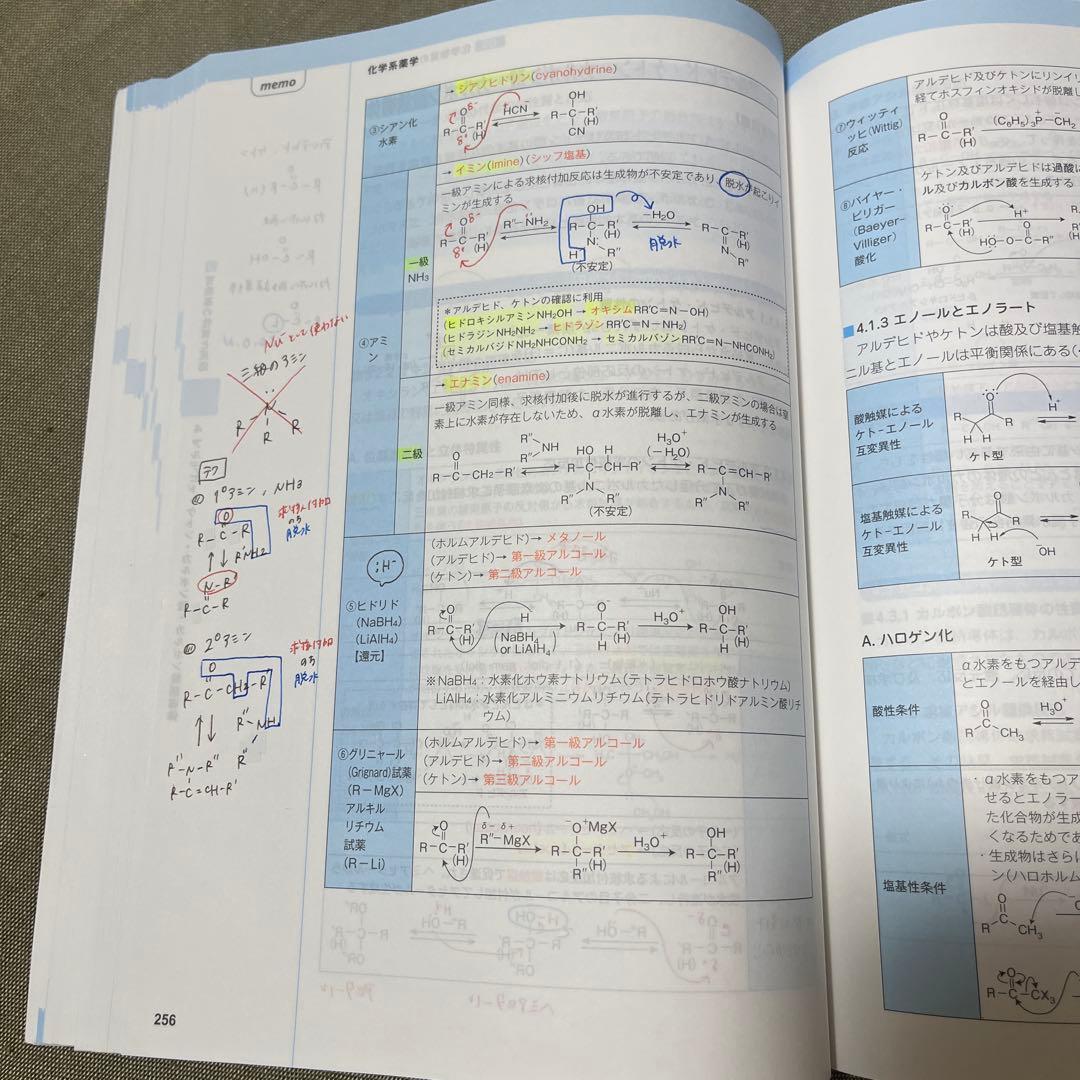 memo
化学系薬学
③シアン化
水素
→ シアノヒドリン(cyanohydrine)
HCN
OH
CN
→ イミン(imine)(シッフ塩基)
一級アミンによる求核付加反応は生成物が不安定であり、脱水が起こりイ
ミンが生成する
R''−NH₂
−H₂O
脱水
(不安定)
④アミ
ン
一級
NH₃
*アルデヒド、ケトンの確認に利用
(ヒドロキシルアミンNH₂OH → オキシムRR'C=N−OH)
(ヒドラジンNH₂NH₂ → ヒドラゾンRR'C=N−NH₂)
(セミカルバジドNH₂NHCONH₂ → セミカルバゾンRR'C=N−NHCONH₂)
→ エナミン(enamine)
一級アミン同様、求核付加後に脱水が進行するが、二級アミンの場合は窒
素上に水素が存在しないため、α水素が脱離し、エナミンが生成する
二級
R−C−CH₂−R'
H₃O⁺
(−H₂O)
R−C−CH−R'
R−C=CH−R'
(不安定)
:H⁻
⑤ヒドリド
(NaBH₄)
(LiAlH₄)
【還元】
(ホルムアルデヒド)→ メタノール
(アルデヒド)→ 第一級アルコール
(ケトン)→ 第二級アルコール
(NaBH₄
or LiAlH₄)
H₃O⁺
※NaBH₄:水素化ホウ素ナトリウム(テトラヒドロホウ酸ナトリウム)
LiAlH₄:水素化アルミニウムリチウム(テトラヒドリドアルミン酸リチ
ウム)
⑥グリニャール
(Grignard)試薬
(R−MgX)
アルキル
リチウム
試薬
(R−Li)
(ホルムアルデヒド)→ 第一級アルコール
(アルデヒド)→ 第二級アルコール
(ケトン)→ 第三級アルコール
R''−MgX
⁻O⁺MgX
H₃O⁺
OH
Nu⁻として使わない
三級のアミン
テク
1°アミン, NH₃
求核付加
のち
脱水
R−C−R
R'NH₂
N−R'
R−C−R
2°アミン
求核付加
のち
脱水
R−C−CH₂−R'
R''−NH
R''
R''−N−R''
R−C=CH−R'
256
⑦ウィッティ
ッヒ(Wittig)
反応
アルデヒド及びケトンにリンイリ
経てホスフィンオキシドが脱離し
(C₆H₅)₃P−CH₂
⑧バイヤー・
ビリガー
(Baeyer-
Villiger)
酸化
ケトン及びアルデヒドは過酸に
ル及びカルボン酸を生成する
H⁺
4.1.3 エノールとエノラート
アルデヒドやケトンは酸及び塩基触
ニル基とエノールは平衡関係にある(
酸触媒による
ケト-エノール
互変異性
H⁺
ケト型
塩基触媒による
ケト-エノール
互変異性
⁻OH
ケト型
A. ハロゲン化
酸性条件
α水素をもつアルデ
とエノールを経由し
H₃O⁺
R CH₃
塩基性条件
・α水素をもつア
せるとエノラー
た化合物が生成
くなるためであ
・生成物はさらに
ン(ハロホルム
R CH₃
R−C−CX₃